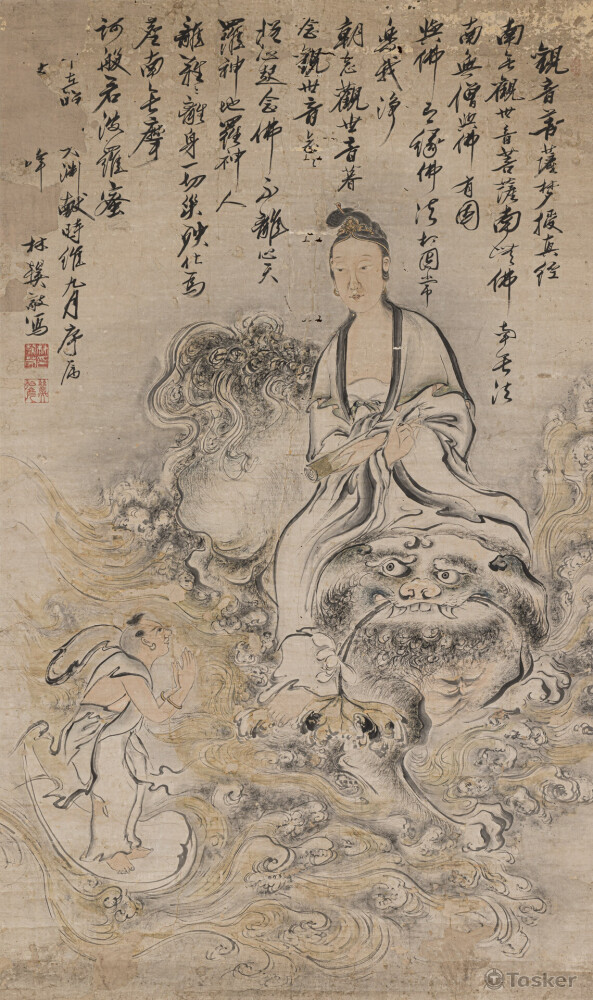 觀音菩薩夢授真經
南無觀世音菩薩南無佛
南無法
南無僧與佛有因
與佛有緣佛法相因常
樂我淨
朝念觀世音暮
念觀世音念念
從心起念佛不離心天
羅神地羅神人
離難難離身一切災殃化為
塵南無摩
訶般若波羅蜜
大淵獻時維九月序屬
敬寫
Tosker